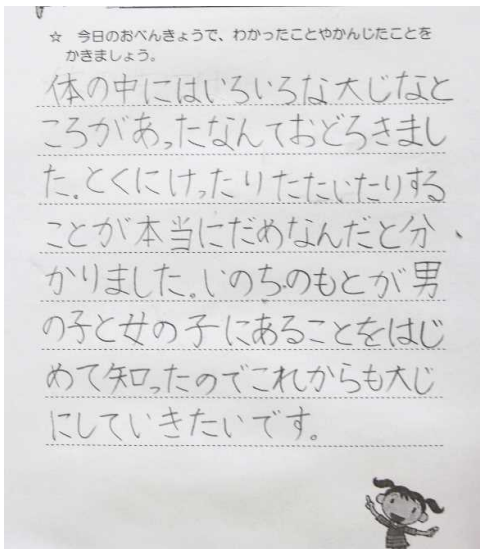 ☆ 今日のおべんきょうで、わかったことやかんじたことを
かきましょう。
体の中にはいろいろな大じなと
ころがあったなんておどろきまし
た。とくにけったりたたいたりする
ことが本当にだめなんだと分
かりました。いのちのもとが男
の子と女の子にあることをはじ
めて知ったのでこれからも大じ
にしていきたいです。